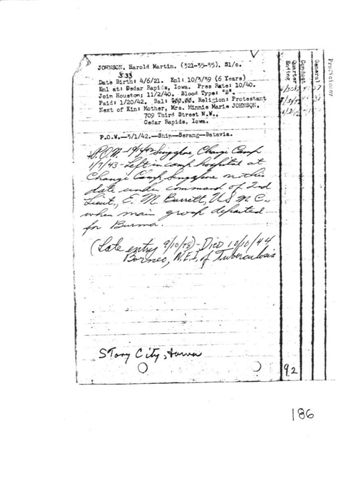 JOHNSON, Harold Martin. (321-35-35). S1/c.
Date Birth: 4/6/21. Enl: 10/3/39 (6 Years)
Enl at: Cedar Rapids, Iowa. Pres Rate: 10/40.
Join Houston: 11/2/40. Blood Type: "A".
Paid: 1/20/42. Bal: Religion: Protestant
Next of Kin: Mother, Mrs. Minnie Marie JOHNSON.
709 Third Street N.W.,
Cedar Rapids, Iowa.
P.O.W.—3/1/42.—Ship—Serang—Batavia.
P.O.W. Singapore, Change Camp
1/7/43-Left in camp hospital at
Change Camp, Singapore on this
date under command of 2nd
Lieut, E. M. Barrett, U S M C.
when main group departed
for Burma.
(Late entry 9/10/78)-Died 10/10/44
Borneo, N.E.I. of Tuberculosis
STory City, Iowa
9.2
186
Proficiency
General
Conduct
Quarter
Ending